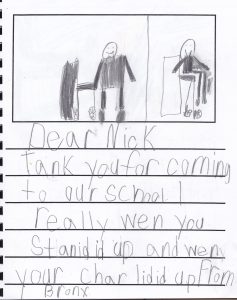 Dear Nick
Tank you for coming
to our school I
really wen you
Stanid id up and wen
your char lidid up From
Bronx